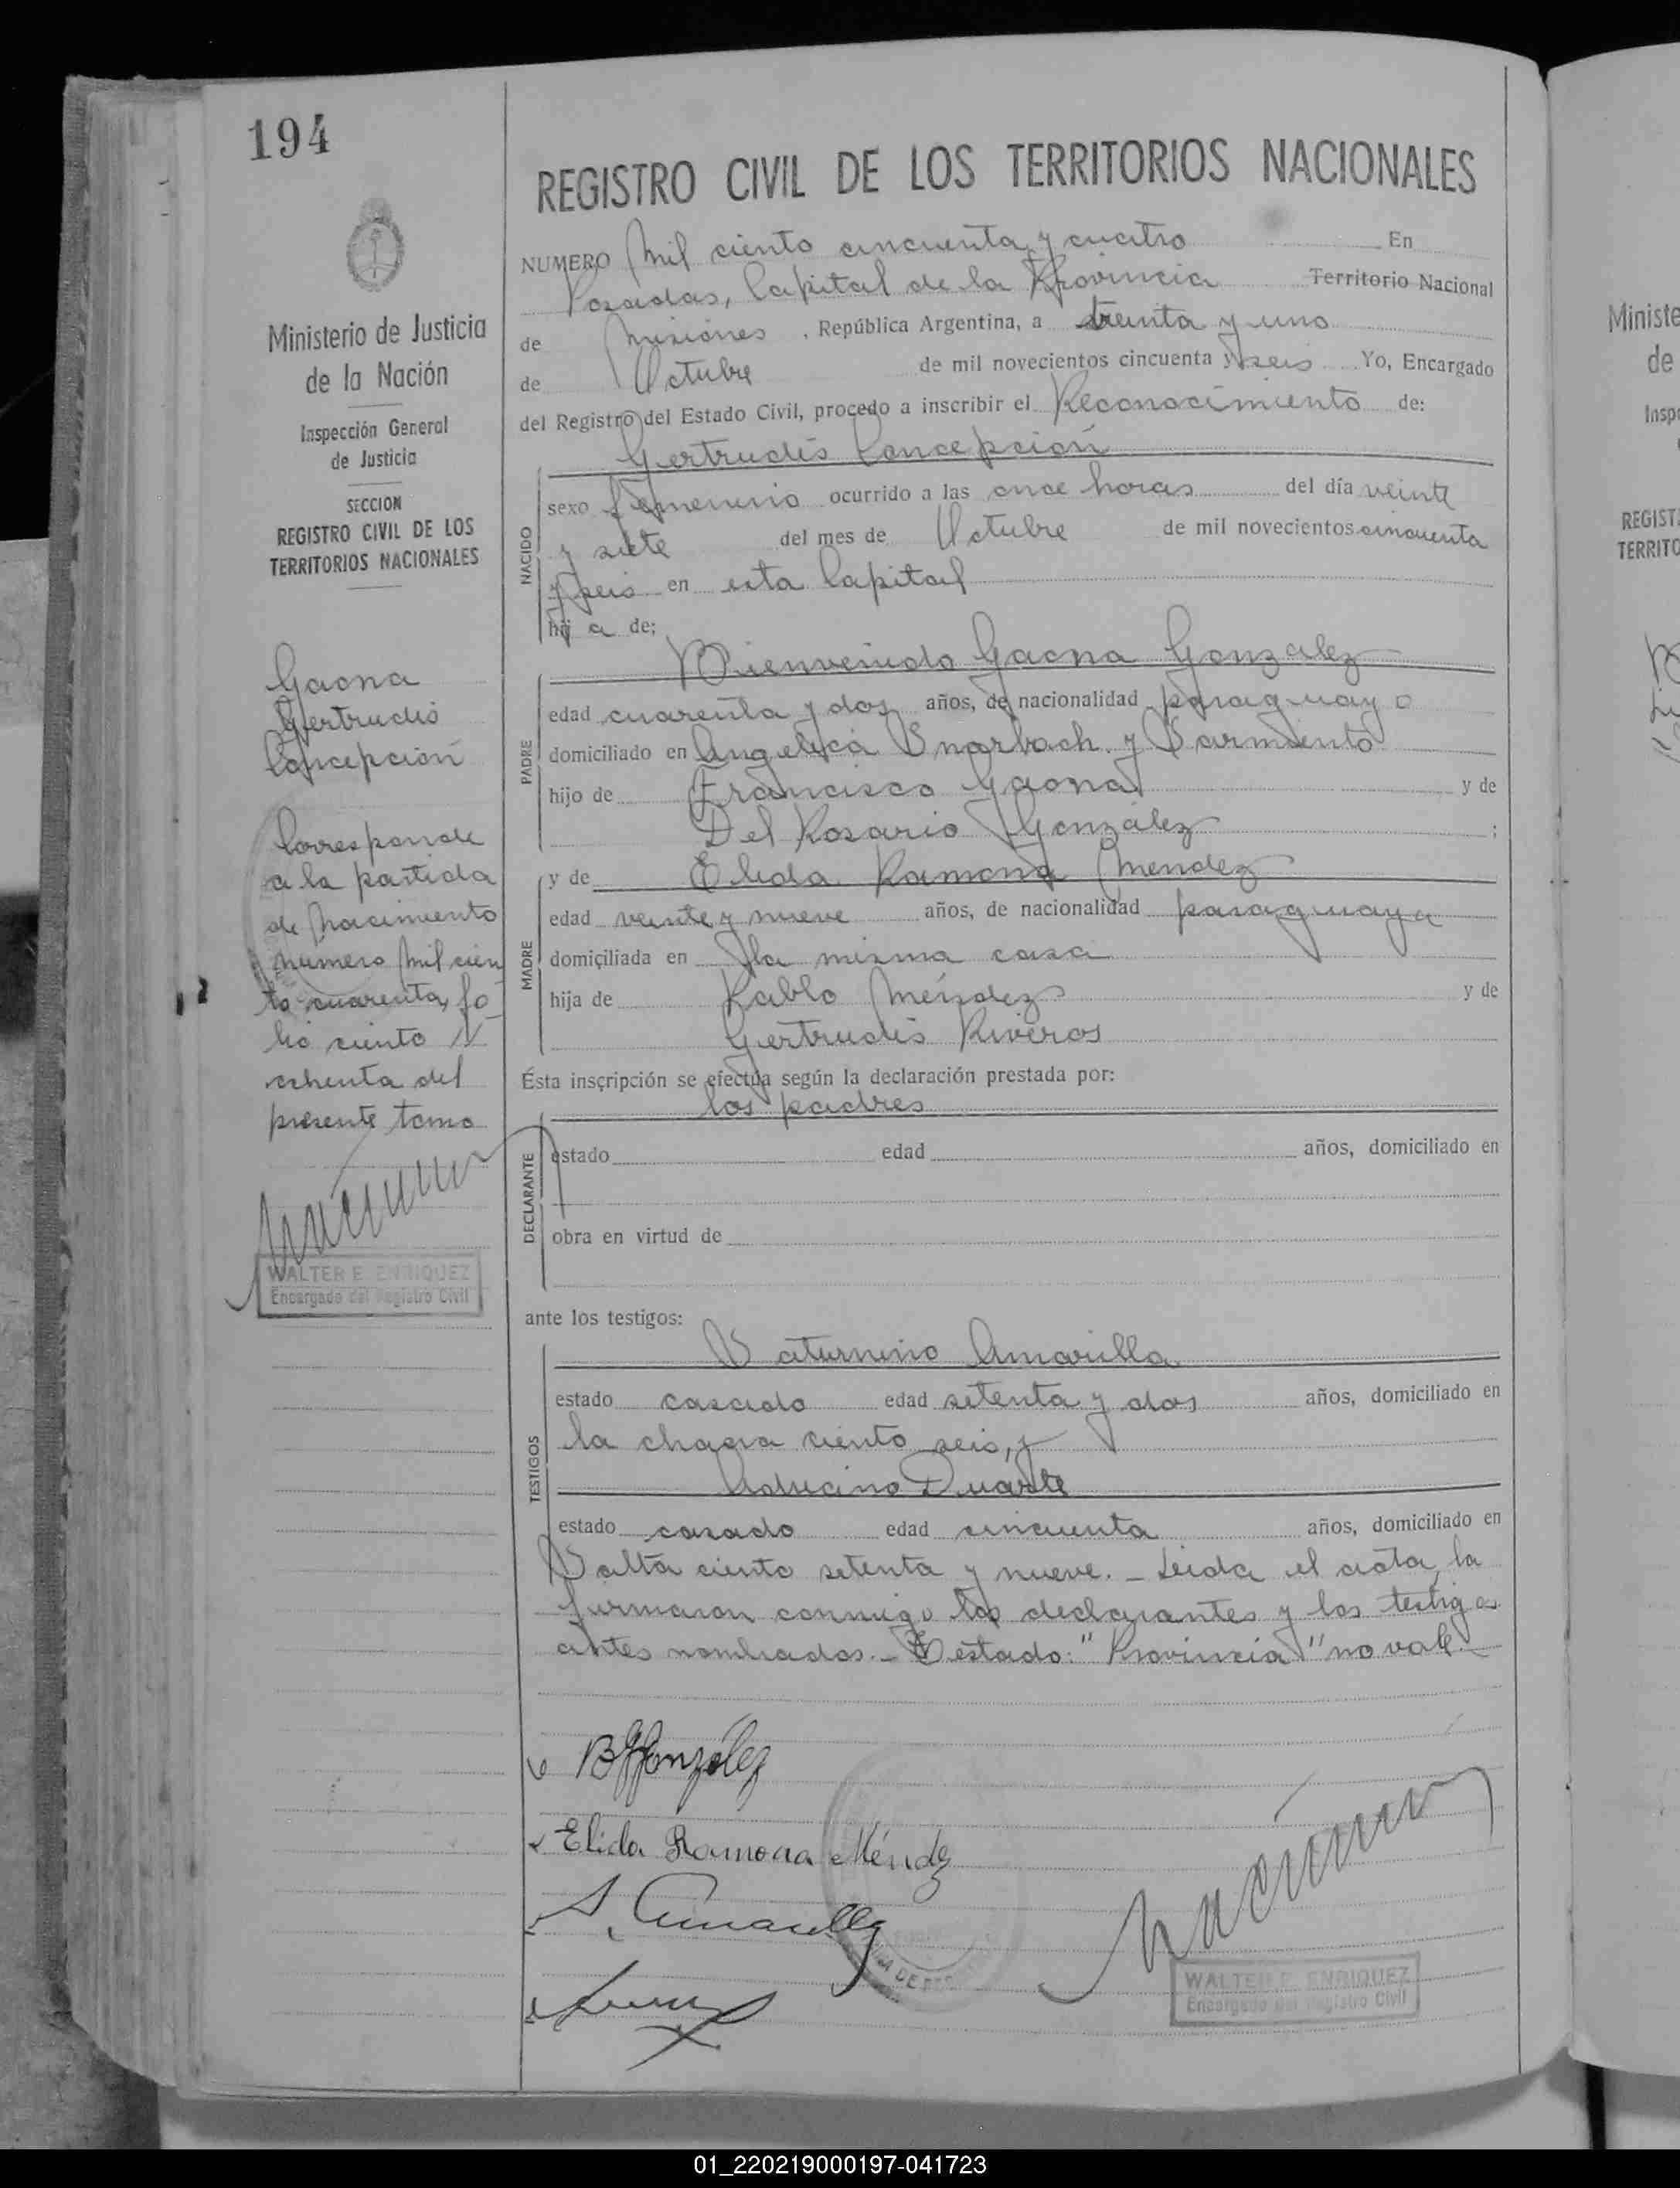 194
REGISTRO CIVIL DE LOS TERRITORIOS NACIONALES
Ministerio de Justicia
de la Nación
Inspección General
de Justicia
SECCION
REGISTRO CIVIL DE LOS
TERRITORIOS NACIONALES
Gaona
Gertrudis
Concepción
Corresponde
a la partida
de nacimiento
número mil cien
to cuarenta, fo-
lio ciento
ochenta del
presente tomo
WALTER E. ENRIQUEZ
Encargado del Registro Civil
NUMERO Mil ciento cincuenta y cuatro En
Posadas, Capital de la Provincia Territorio Nacional
de Misiones , República Argentina, a treinta y uno
de Octubre de mil novecientos cincuenta y seis Yo, Encargado
del Registro del Estado Civil, procedo a inscribir el Reconocimiento de:
Gertrudis Concepción
NACIDO
sexo femenino ocurrido a las once horas del día veinte
y siete del mes de Octubre de mil novecientos cincuenta
y seis en esta Capital
hij a de;
Bienvenido Gaona González
PADRE
edad cuarenta y dos años, de nacionalidad paraguayo
domiciliado en Angélica y Sarmiento
hijo de Francisco Gaona y de
Del Rosario González ;
y de Elida Ramona Mendez
MADRE
edad veinte y nueve años, de nacionalidad paraguaya
domiciliada en la misma casa
hija de Pablo Méndez y de
Gertrudis Riveros
Esta inscripción se efectúa según la declaración prestada por:
los padres
DECLARANTE
estado edad años, domiciliado en
obra en virtud de
ante los testigos:
Saturnino Amarilla
TESTIGOS
estado casado edad setenta y dos años, domiciliado en
la chacra ciento seis, y
Duarte
estado casado edad cincuenta años, domiciliado en
Salta ciento setenta y nueve. - Leida el acta, la
firmaron conmigo los declarantes y los testigos
antes nombrados. - Testado: "Provincia" no vale. -
B G González
Elida Ramona Méndez
S. Amarilla
WALTER E. ENRIQUEZ
Encargado del Registro Civil
Ministe
de
Inspe
REGIST
TERRITO
01_220219000197-041723